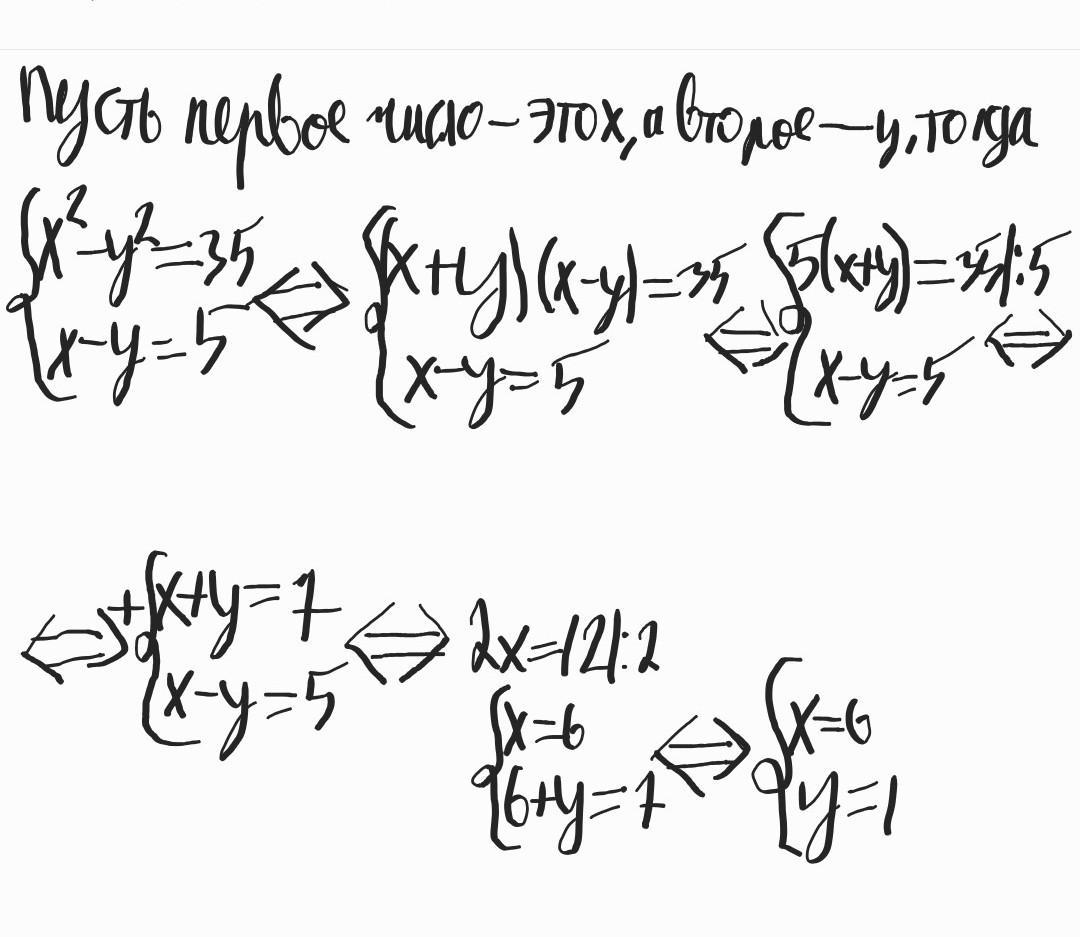 Пусть первое число – это x, а второе — y, тогда
{x² – y² = 35 ⇔ {(x+y)(x–y) = 35 ⇔ {5(x+y) = 35 |:5 ⇔
x – y = 5 x – y = 5 x – y = 5
⇔ + {x+y = 7 ⇔ 2x = 12 |:2
x – y = 5 {x = 6 ⇔ {x = 6
6+y = 7 y = 1